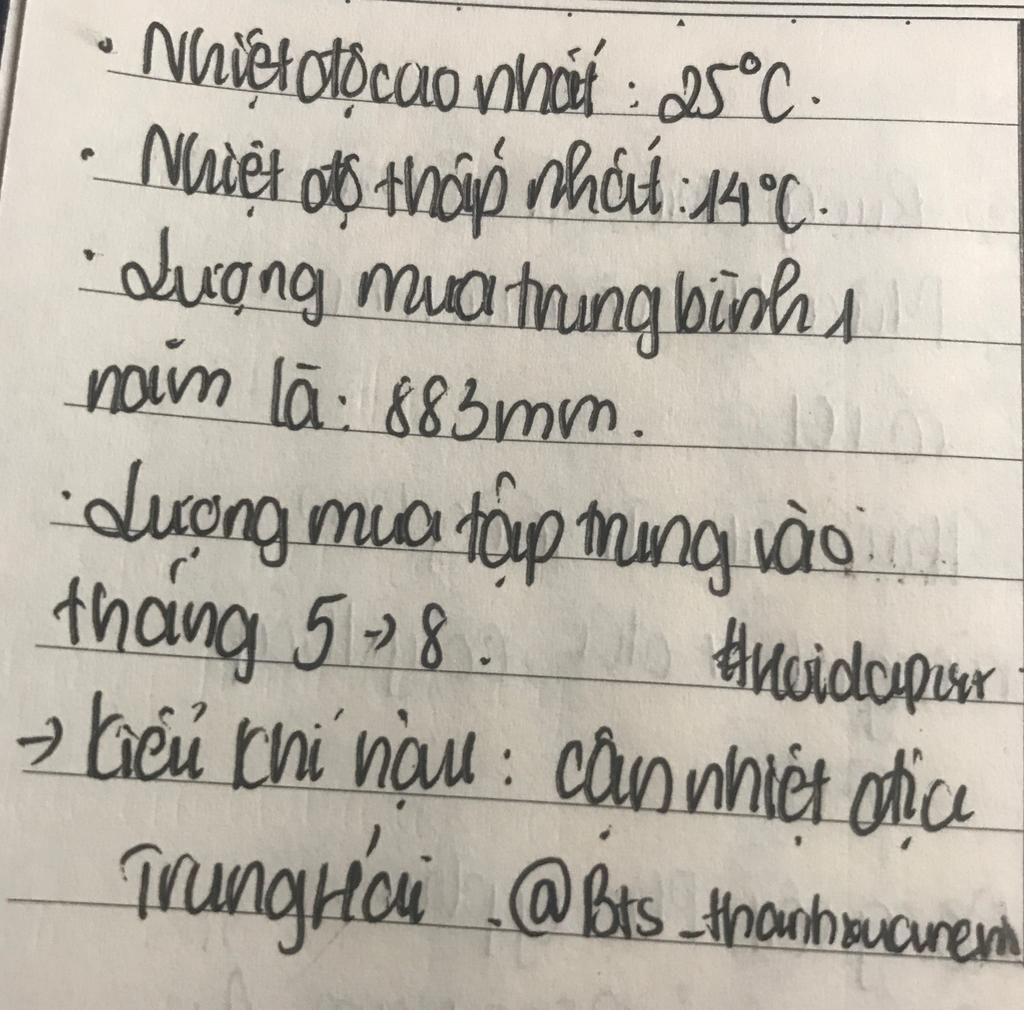 • Nhiệt độ cao nhất : 25°C.
• Nhiệt độ thấp nhất : 14°C.
• Lượng mưa trung bình 1
năm là : 883mm.
• Lượng mưa tập trung vào
tháng 5 → 8. #hoidapvtr
→ kiểu khí hậu : cận nhiệt địa
Trung Hải. @Bts_thanhxuanem